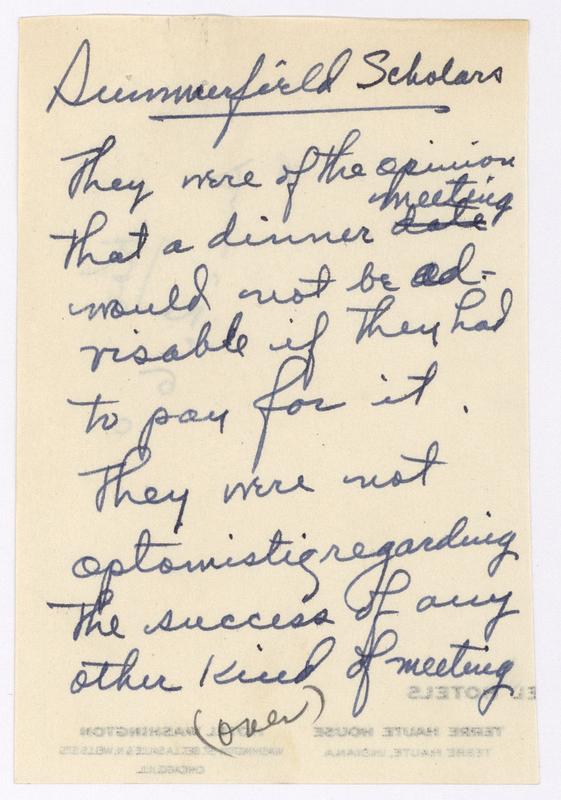 Summerfield Scholars
They were of the opinion
meeting
that a dinner date
would not be ad-
visable if they had
to pay for it.
They were not
optomistig regarding
the success of any
other kind of meeting
(over)
EL HOTELS
TERRE HAUTE HOUSE
TERRE HAUTE, INDIANA
WASHINGTON
WASHINGTON ST. BET. LA SALLE & N. WELLS STS
CHICAGO, ILL.